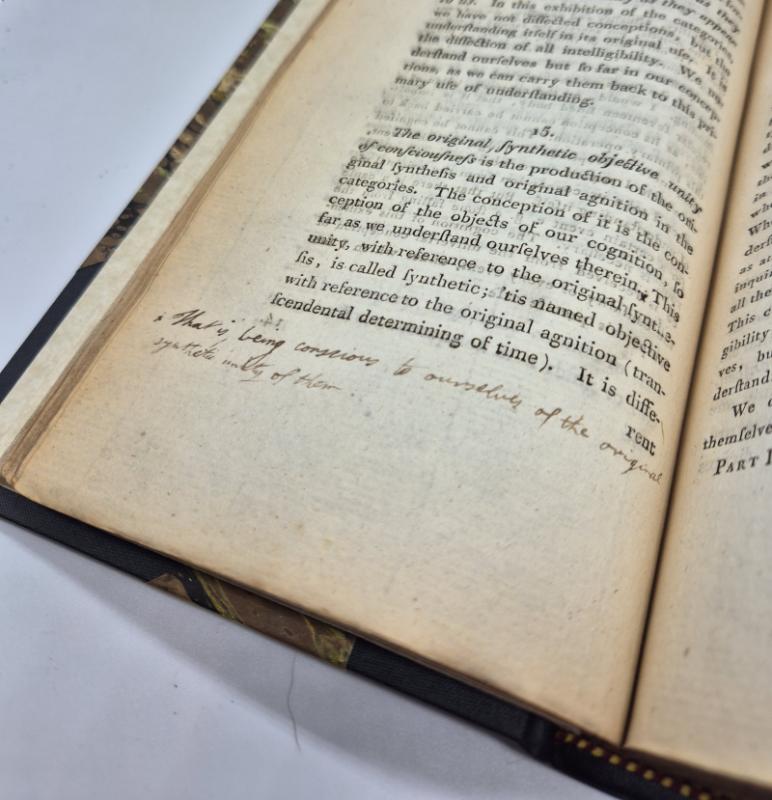 to us. In this exhibition of the categories,
we have not diſſected conceptions, but the
underſtanding itſelf in its original uſe. It is
the diſſection of all intelligibility. We un-
derſtand ourſelves but ſo far in our concep-
tions, as we can carry them back to this pri-
mary uſe of underſtanding.
15.
The original, ſynthetic objective unity
of conſciouſneſs is the production of the ori-
ginal ſyntheſis and original agnition in the
categories. The conception of it is the con-
ception of the objects of our cognition, ſo
far as we underſtand ourſelves therein.* This
unity, with reference to the original ſynthe-
ſis, is called ſynthetic; 'tis named objective
with reference to the original agnition (tran-
ſcendental determining of time). It is diffe-
rent
* That is being conscious to ourselves of the original
synthetic unity of them
We
themſelve
PART I